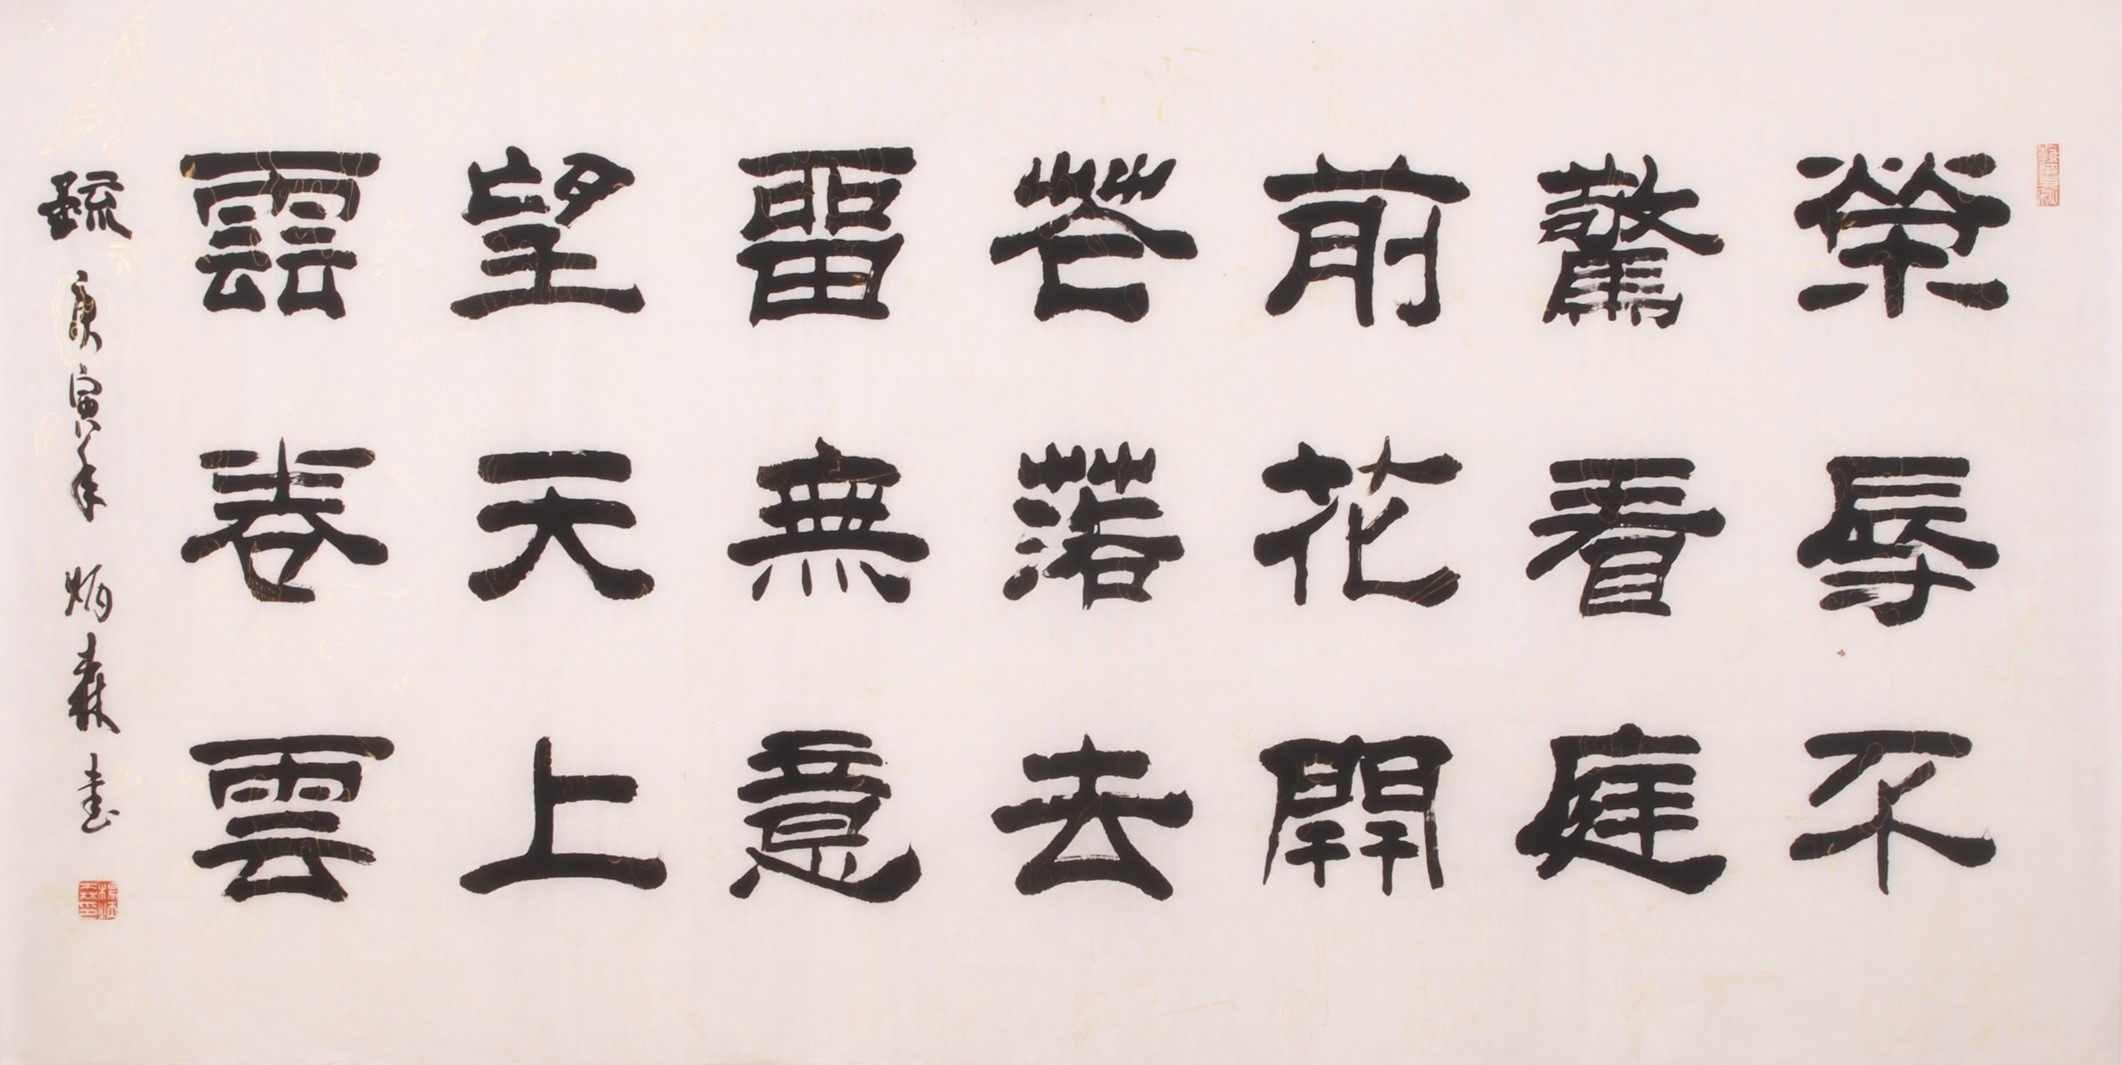 榮辱不
驚看庭
前花開
花落去
畱無意
望天上
雲卷雲
疏 庚寅年 炳森書